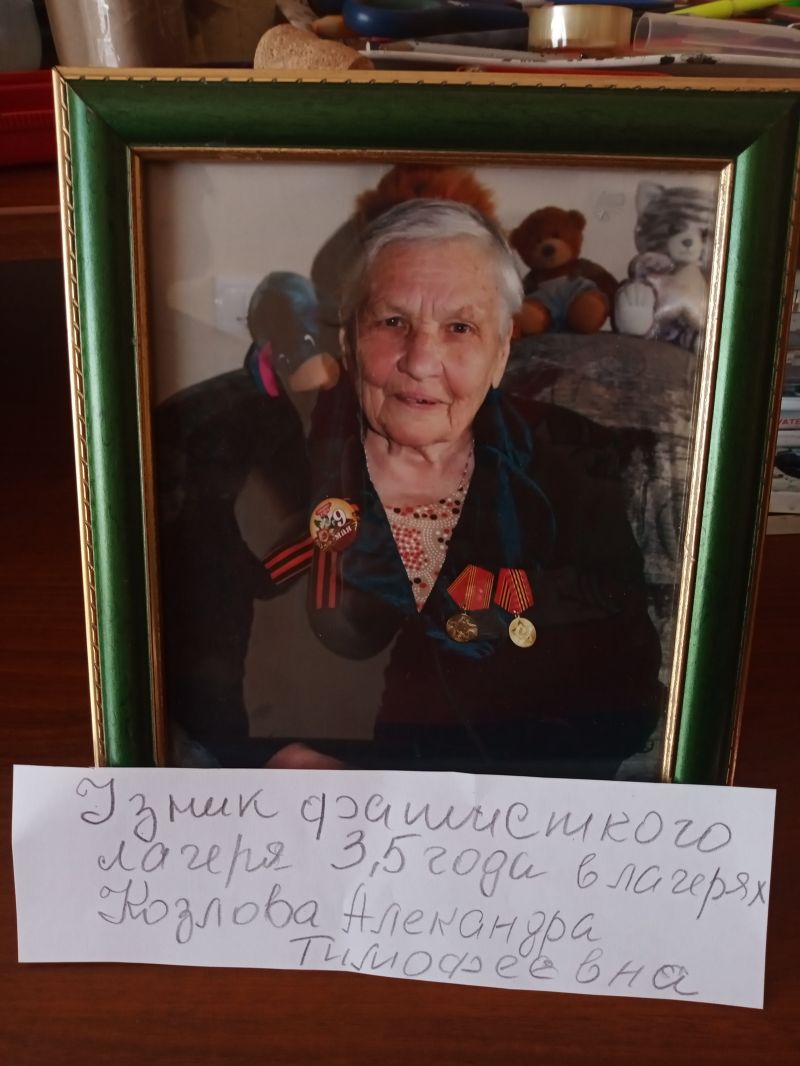 9
мая
Узник фашисткого
лагеря 3,5 года в лагерях
Козлова Алекандра
Тимофеевна